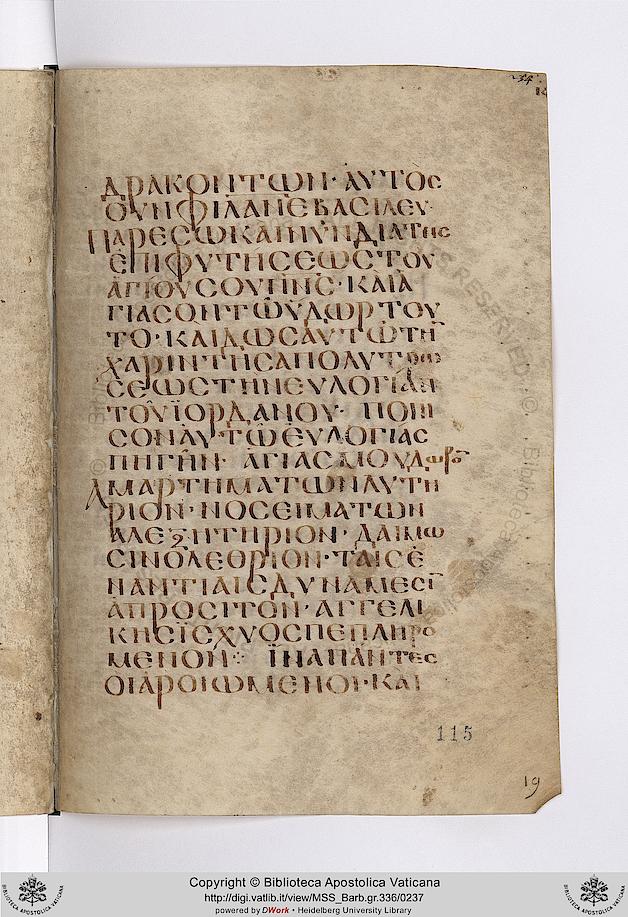 ΔΡΑΚΟΝΤΩΝ· ΑΥΤΟC
ΟΥΝ ΦΙΛΑΝΕ ΒΑCΙΛΕΥ·
ΠΑΡΕCΩ ΚΑΙ ΝΥΝ ΔΙΑ ΤΗC
ΕΠΙΦΥΤΗCΕΩC ΤΟΥ
ΑΓΙΟΥ CΟΥ ΠΝC· ΚΑΙ Α
ΓΙΑCΟΝ ΤΩ ΥΔΩΡ ΤΟΥ
ΤΟ· ΚΑΙ ΔΩC ΑΥΤΩ ΤΗ
ΧΑΡΙΝ ΤΗC ΑΠΟΛΥΤΡΩ
CΕΩC ΤΗΝ ΕΥΛΟΓΙΑΝ
ΤΟΥ ΪΟΡΔΑΝΟΥ· ΠΟΙΗ
CΟΝ ΑΥΤΩ ΕΥΛΟΓΙΑC
ΠΗΓΗΝ· ΑΓΙΑCΜΟΥ ΔΩΡΟ
ΑΜΑΡΤΗΜΑΤΩΝ ΛΥΤΗ
ΡΙΟΝ· ΝΟCΕΙΜΑΤΩΝ
ΑΛΕΞΗΤΗΡΙΟΝ· ΔΑΙΜΩ
CΙΝ ΟΛΕΘΡΙΟΝ· ΤΑΙC Ε
ΝΑΝΤΙΑΙC ΔΥΝΑΜΕCΙ
ΑΠΡΟCΙΤΟΝ· ΑΓΓΕΛΙ
ΚΗC ΪCΧΥΟC ΠΕΠΛΗΡΟ
ΜΕΝΟΝ ⁘ ΪΝΑ ΠΑΝΤΕC
ΟΙ ΑΡΟΙΩΜΕΝΟΙ· ΚΑΙ
115
19
Copyright © Biblioteca Apostolica Vaticana
http://digi.vatlib.it/view/MSS_Barb.gr.336/0237
powered by DWork • Heidelberg University Library